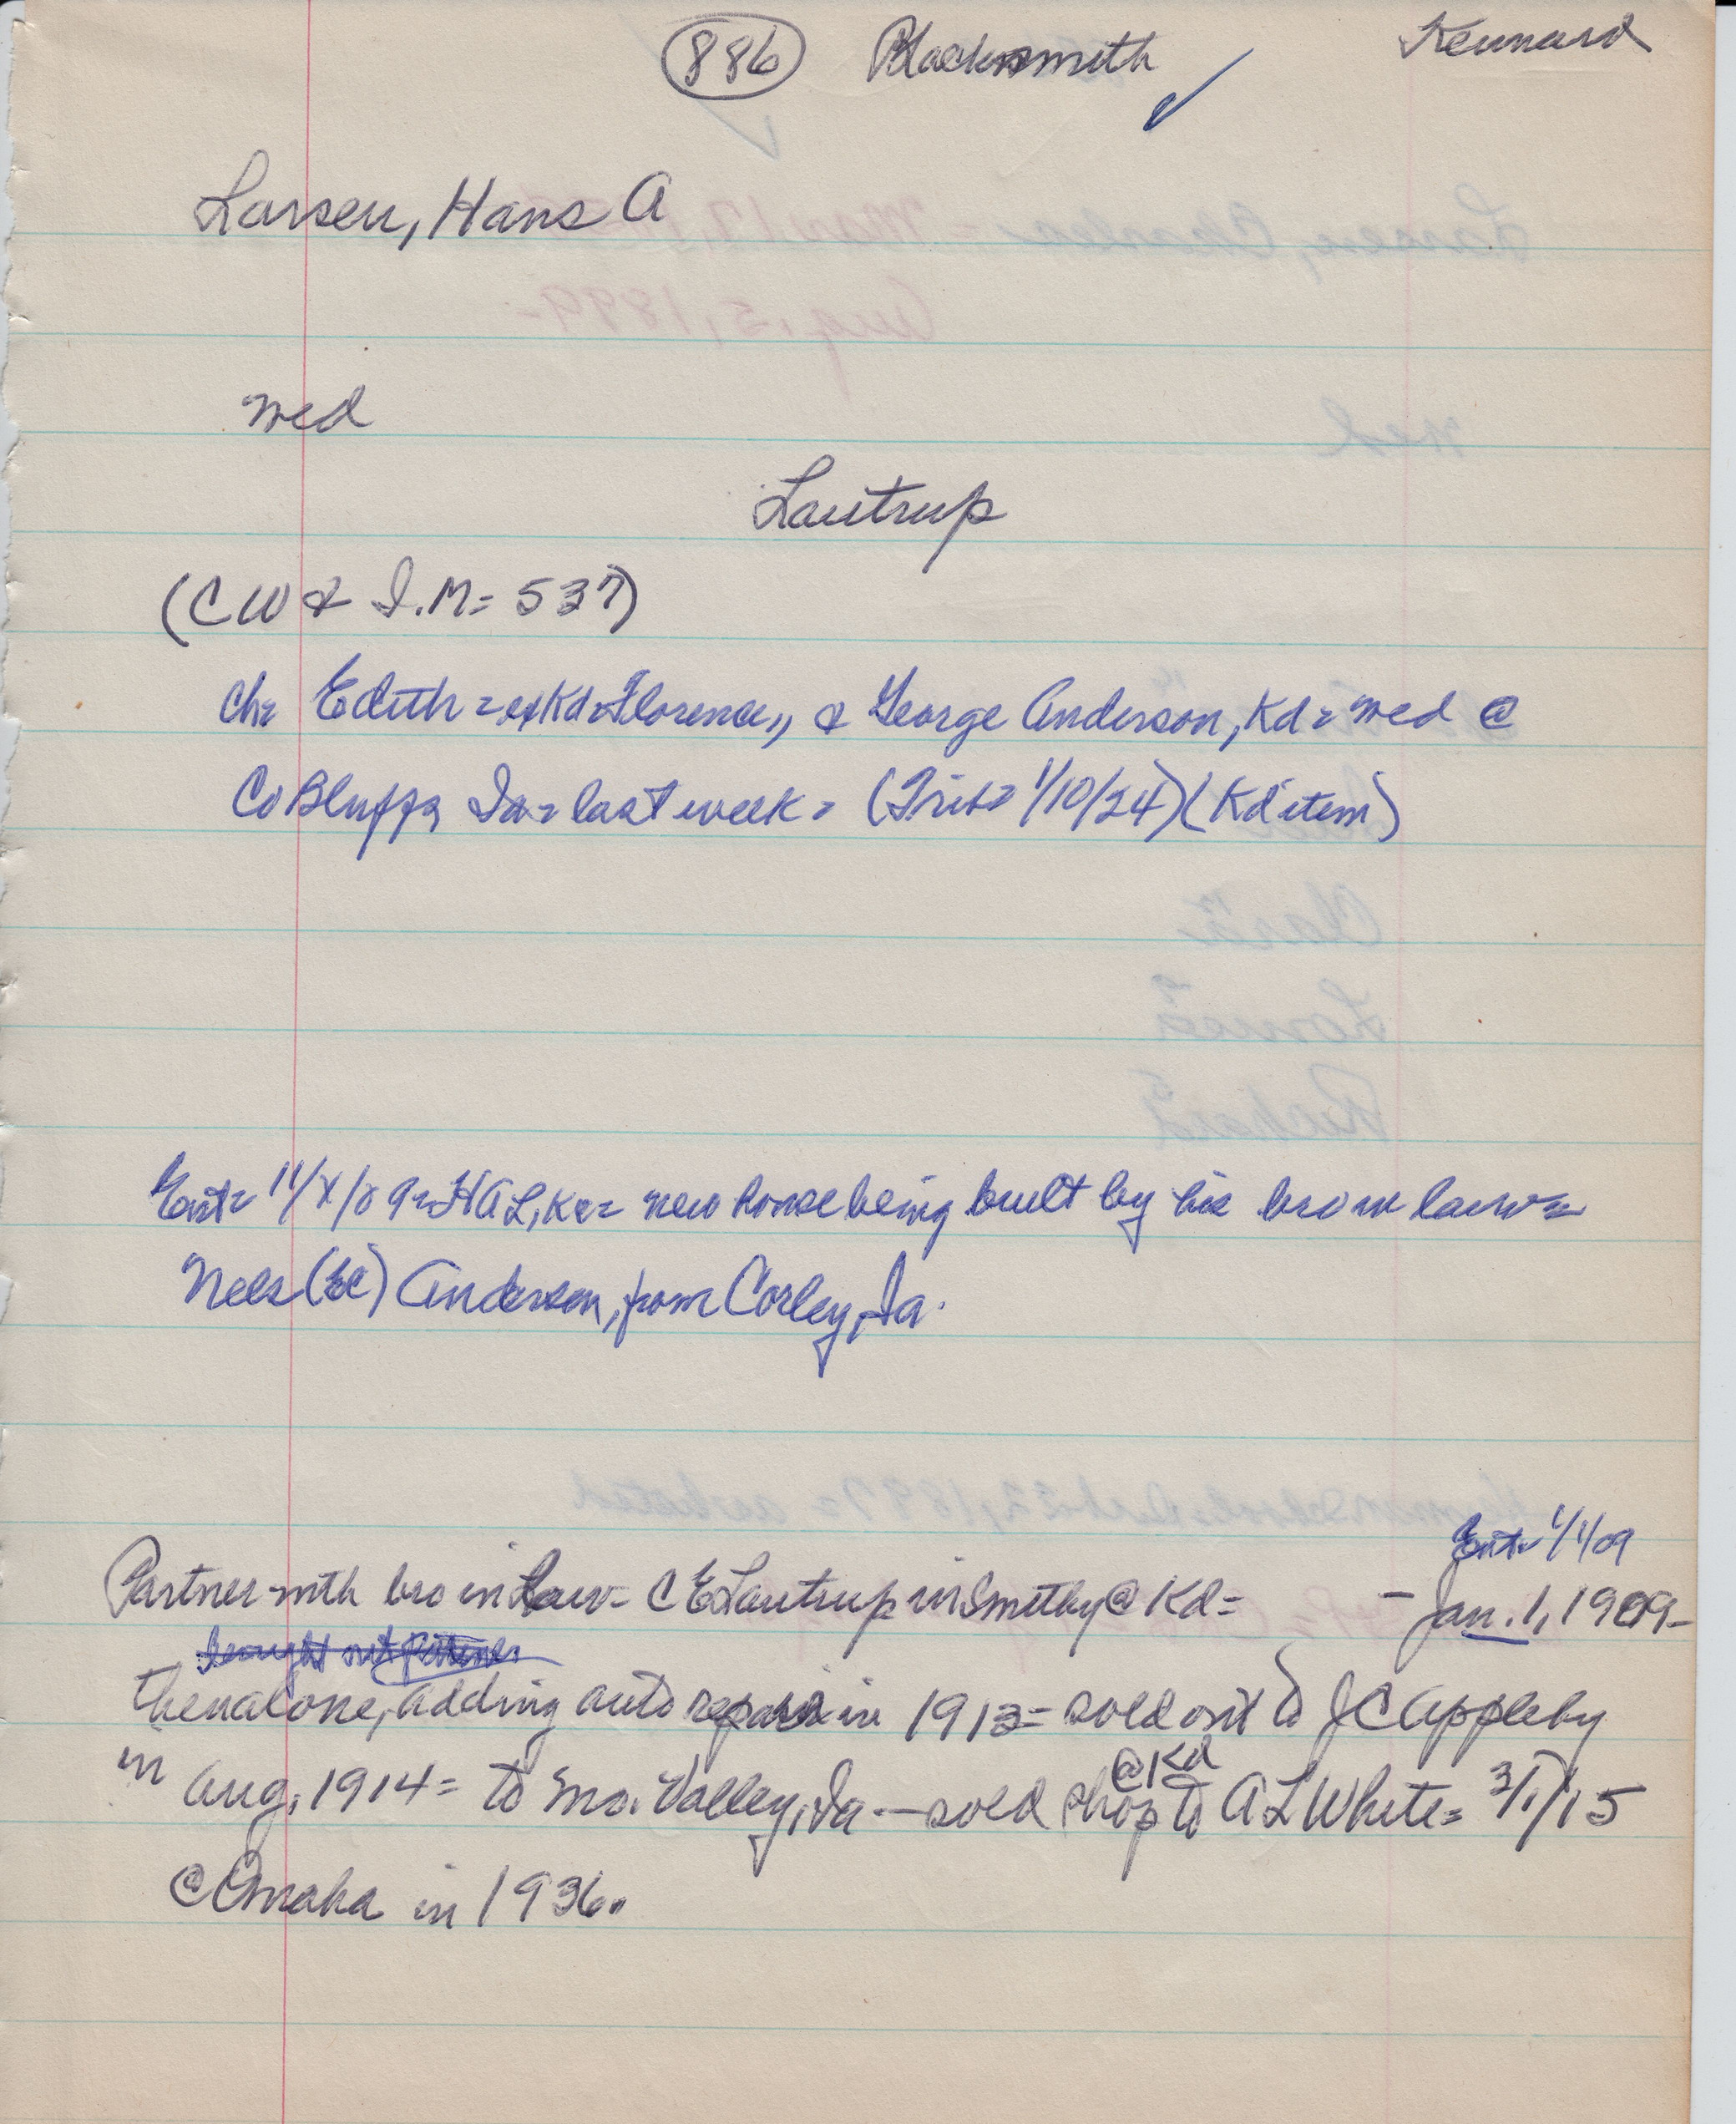 886 Blacksmith ✓ Kennard
Larsen, Hans A
med
Lautrup
(CW & I.M= 537)
ch= Edith = ex Kd = Florence,, & George Anderson, Kd = med @
Co Bluffs Ia = last week = (Trib= 1/10/24) (Kd item)
Ent= 11/X/09 = HAL, Kd= new house being built by his bro in law =
Nels (EC) Anderson, from Corley, Ia.
Ent= 1/1/09
Partner with bro in Law - C E Lautrup in Smithy @ Kd = - Jan. 1, 1909 -
bought out
then alone, adding auto repairs in 1913 = sold out to J C Appleby
in Aug, 1914 = to Mo. Valley, Ia. - sold shop @Kd to A L White = 3/1/15
@ Omaha in 1936.